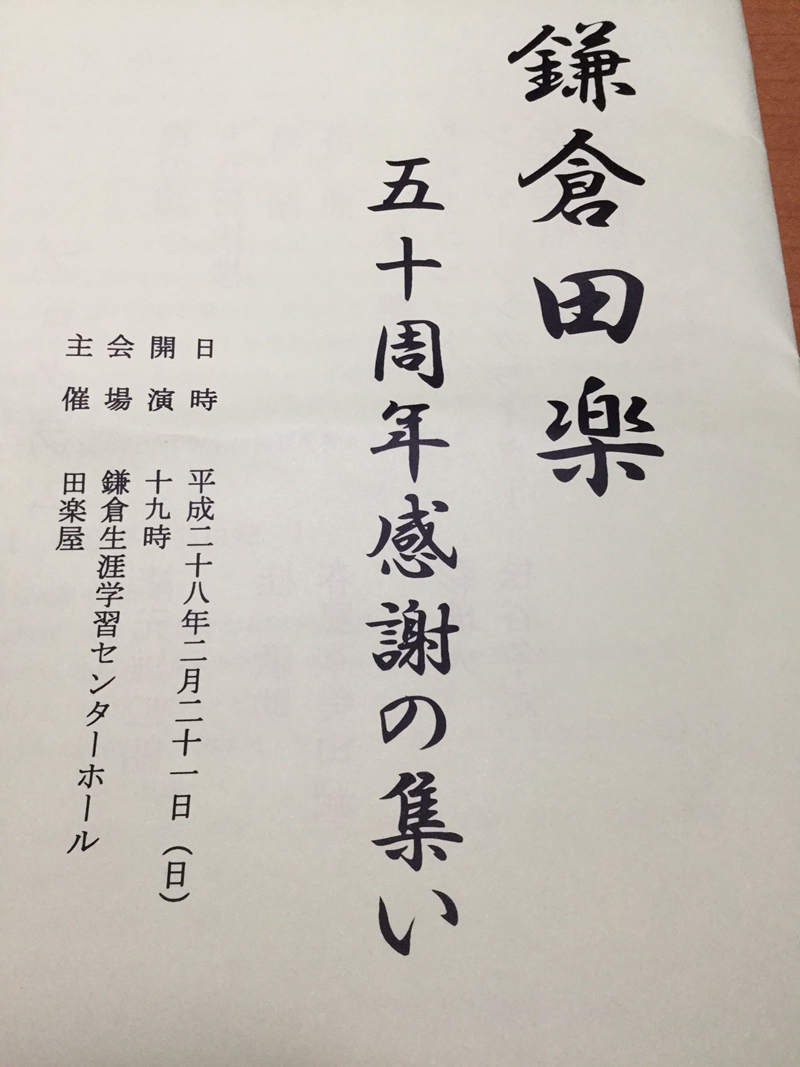 鎌倉田楽
五十周年感謝の集い
日時 平成二十八年二月二十一日(日)
開演 十九時
会場 鎌倉生涯学習センターホール
主催 田楽屋